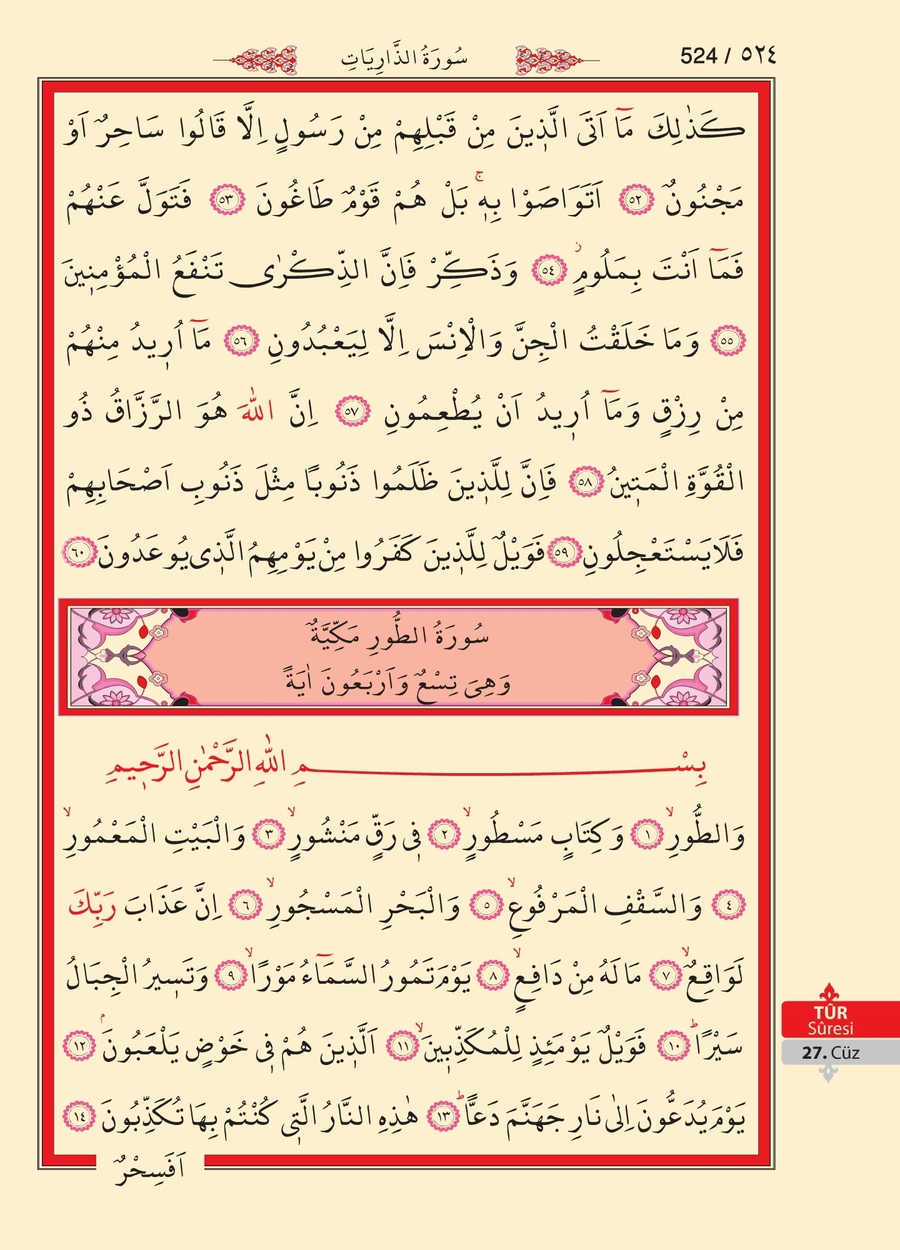 سُورَةُ الذَّارِيَاتِ
524 / ٥٢٤
كَذٰلِكَ مَٓا اَتَى الَّذ۪ينَ مِنْ قَبْلِهِمْ مِنْ رَسُولٍ اِلَّا قَالُوا سَاحِرٌ اَوْ
مَجْنُونٌ ﴿٥٢﴾ اَتَوَاصَوْا بِه۪ۚ بَلْ هُمْ قَوْمٌ طَاغُونَ ﴿٥٣﴾ فَتَوَلَّ عَنْهُمْ
فَمَٓا اَنْتَ بِمَلُومٍۘ ﴿٥٤﴾ وَذَكِّرْ فَاِنَّ الذِّكْرٰى تَنْفَعُ الْمُؤْمِن۪ينَ
﴿٥٥﴾ وَمَا خَلَقْتُ الْجِنَّ وَالْاِنْسَ اِلَّا لِيَعْبُدُونِ ﴿٥٦﴾ مَٓا اُر۪يدُ مِنْهُمْ
مِنْ رِزْقٍ وَمَٓا اُر۪يدُ اَنْ يُطْعِمُونِ ﴿٥٧﴾ اِنَّ اللّٰهَ هُوَ الرَّزَّاقُ ذُو
الْقُوَّةِ الْمَت۪ينُ ﴿٥٨﴾ فَاِنَّ لِلَّذ۪ينَ ظَلَمُوا ذَنُوبًا مِثْلَ ذَنُوبِ اَصْحَابِهِمْ
فَلَا يَسْتَعْجِلُونِ ﴿٥٩﴾ فَوَيْلٌ لِلَّذ۪ينَ كَفَرُوا مِنْ يَوْمِهِمُ الَّذ۪ي يُوعَدُونَ ﴿٦٠﴾
سُورَةُ الطُّورِ مَكِّيَّةٌ
وَهِىَ تِسْعٌ وَاَرْبَعُونَ اٰيَةً
بِسْمِ اللّٰهِ الرَّحْمٰنِ الرَّح۪يمِ
وَالطُّورِۙ ﴿١﴾ وَكِتَابٍ مَسْطُورٍۙ ﴿٢﴾ ف۪ي رَقٍّ مَنْشُورٍۙ ﴿٣﴾ وَالْبَيْتِ الْمَعْمُورِۙ
﴿٤﴾ وَالسَّقْفِ الْمَرْفُوعِۙ ﴿٥﴾ وَالْبَحْرِ الْمَسْجُورِۙ ﴿٦﴾ اِنَّ عَذَابَ رَبِّكَ
لَوَاقِعٌۙ ﴿٧﴾ مَا لَهُ مِنْ دَافِعٍۙ ﴿٨﴾ يَوْمَ تَمُورُ السَّمَٓاءُ مَوْرًاۙ ﴿٩﴾ وَتَس۪يرُ الْجِبَالُ
سَيْرًاۜ ﴿١٠﴾ فَوَيْلٌ يَوْمَئِذٍ لِلْمُكَذِّب۪ينَۙ ﴿١١﴾ اَلَّذ۪ينَ هُمْ ف۪ي خَوْضٍ يَلْعَبُونَۢ ﴿١٢﴾
يَوْمَ يُدَعُّونَ اِلٰى نَارِ جَهَنَّمَ دَعًّاۜ ﴿١٣﴾ هٰذِهِ النَّارُ الَّت۪ي كُنْتُمْ بِهَا تُكَذِّبُونَ ﴿١٤﴾
اَفَسِحْرٌ
TÛR
Sûresi
27. Cüz